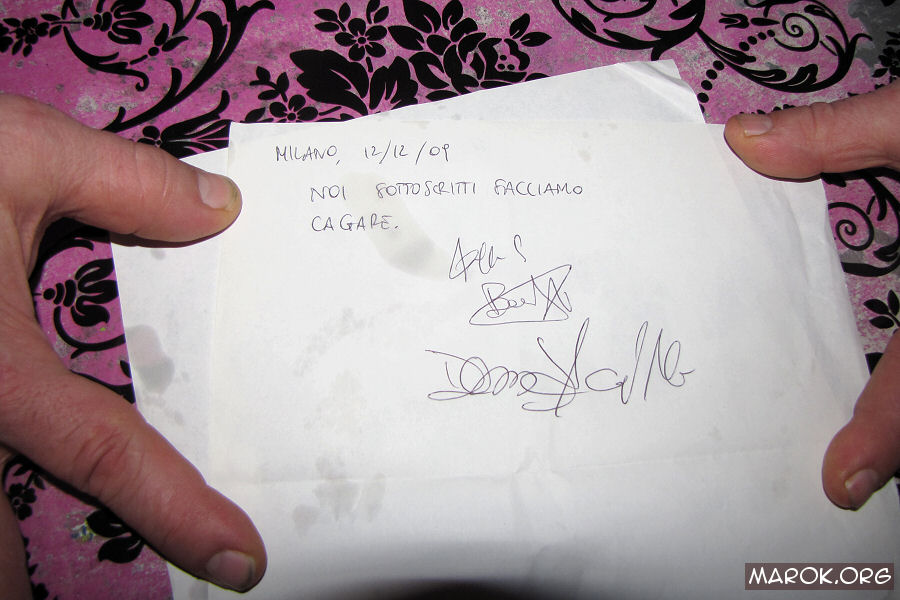 MILANO, 12/12/09
NOI SOTTOSCRITTI FACCIAMO
CAGARE.
MAROK.ORG